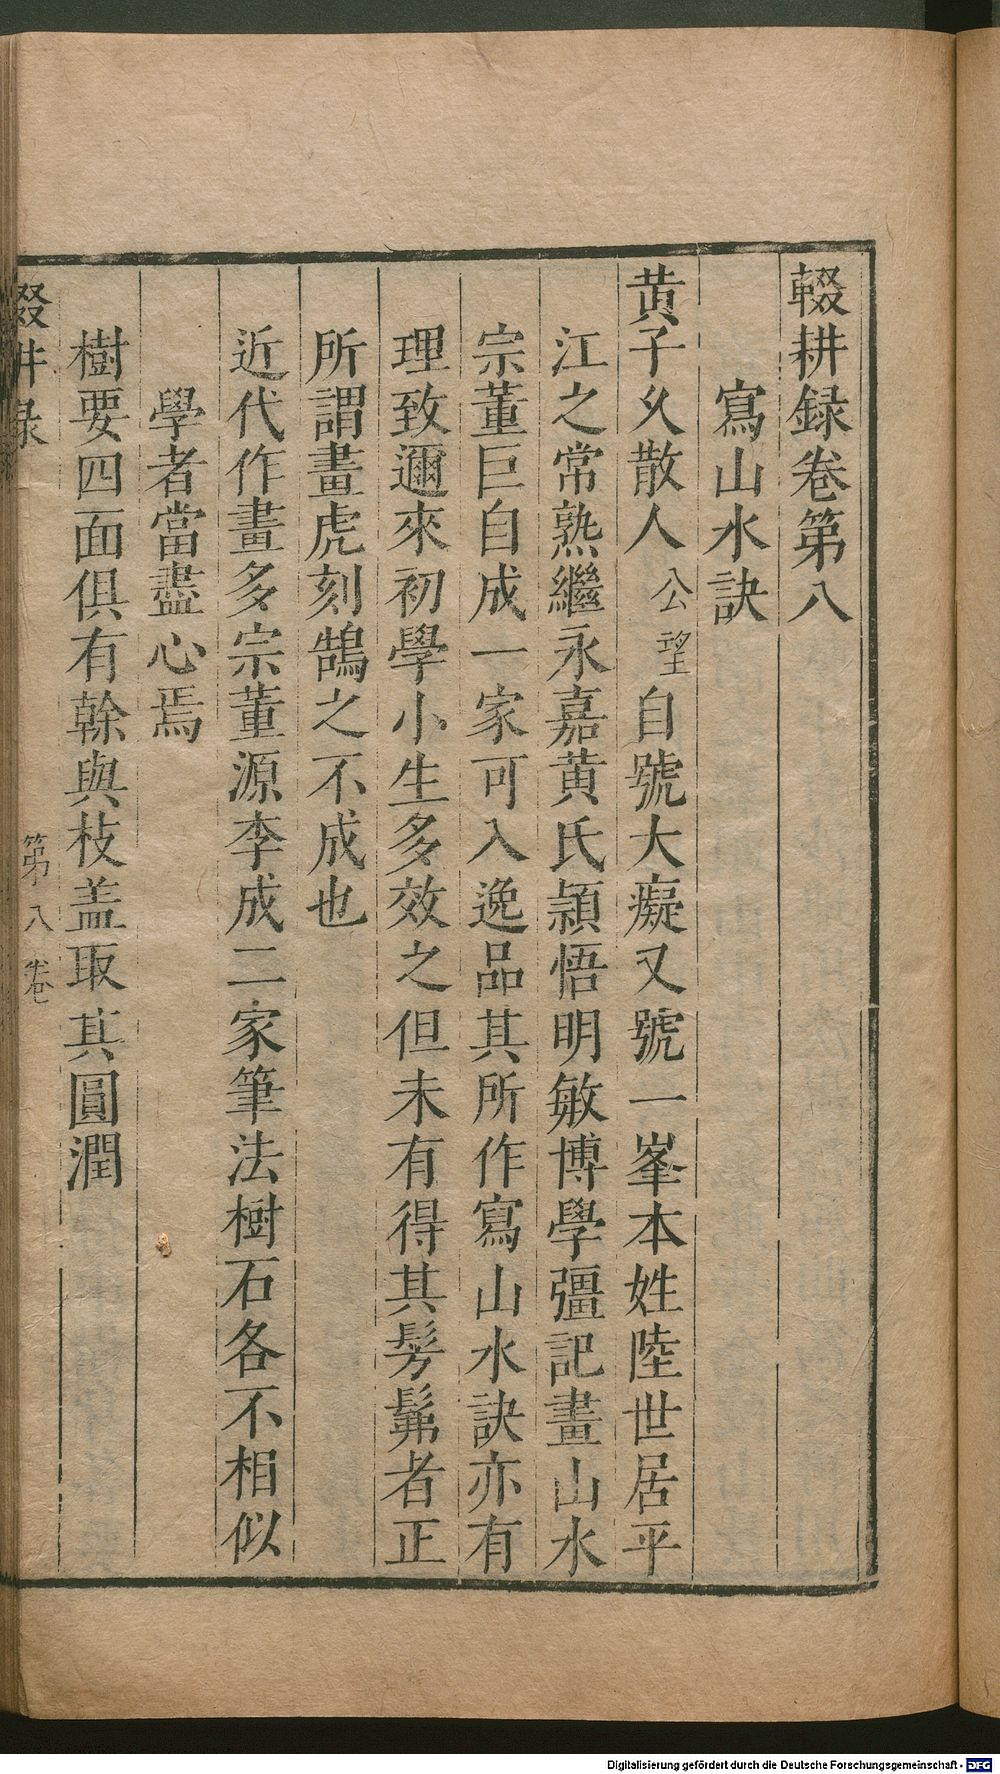 輟耕録卷第八
寫山水訣
黄子久散人公望自號大癡又號一峯本姓陸世居平
江之常熟繼永嘉黄氏頴悟明敏博學彊記畫山水
宗董巨自成一家可入逸品其所作寫山水訣亦有
理致邇來初學小生多效之但未有得其髣髴者正
所謂畫虎刻鵠之不成也
近代作畫多宗董源李成二家筆法樹石各不相似
學者當盡心焉
樹要四面俱有榦與枝盖取其圓潤
輟耕録 第八卷
Digitalisierung gefördert durch die Deutsche Forschungsgemeinschaft - DFG